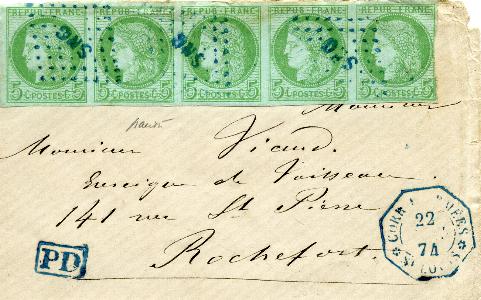 REPUB. FRANC. REPUB. FRANC. REPUB. FRANC. REPUB. FRANC. REPUB. FRANC.
SNG SNG SNG
5 C. POSTES 5 C. 5 C. POSTES 5 C. 5 C. POSTES 5 C. 5 C. POSTES 5 C. 5 C. POSTES 5 C.
Monsieur
Monsieur Viaud.
Enseigne de Vaisseau
141 rue St Pierre
Rochefort.
PD
CORR
22
74